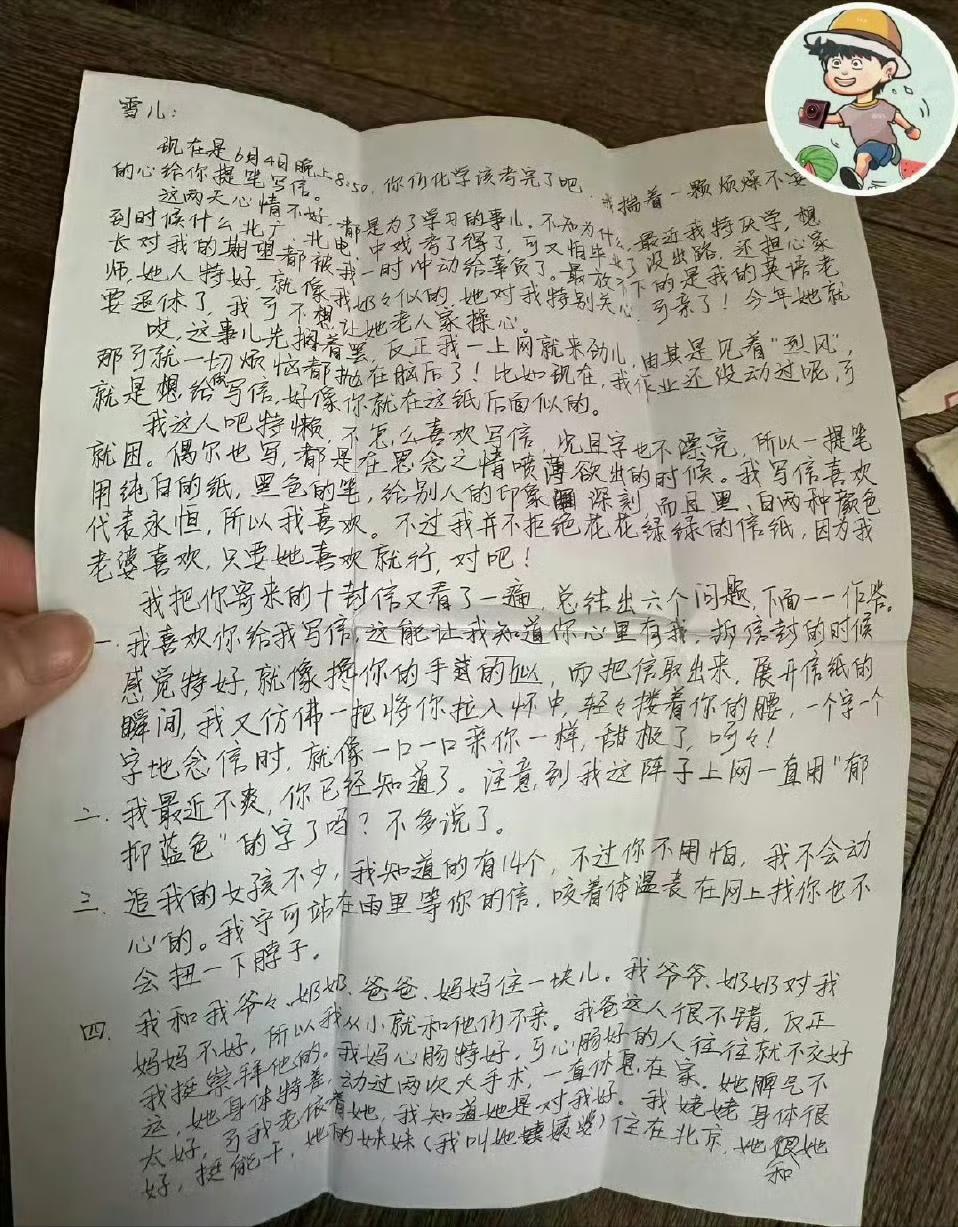 雪儿：
现在是6月4日晚上8:50，你们化学该考完了吧，我揣着一颗烦燥不安
的心给你提笔写信。
这两天心情不好，都是为了学习的事儿。不知为什么，最近我特厌学，想
到时候什么北广、北电、中戏考了得了，可又怕毕业了没出路，还担心家
长对我的期望都被我一时冲动给辜负了。最放不下的是我的英语老
师，她人特好，就像我奶々似的，她对我特别关心，可亲了！今年她就
要退休了，我可不想让她老人家操心。
哎，这事儿先搁着罢，反正我一上网就来劲儿，由其是见着“烈风”，
那可就一切烦恼都抛在脑后了！比如现在，我作业还没动过呢，可
就是想给你写信，好像你就在这纸后面似的。
我这人吧特懒，不怎么喜欢写信，况且字也不漂亮，所以一提笔
就困。偶尔也写，都是在思念之情喷薄欲出的时候。我写信喜欢
用纯白的纸，黑色的笔，给别人的印象深刻，而且黑、白两种颜色
代表永恒，所以我喜欢。不过我并不拒绝花花绿绿的信纸，因为我
老婆喜欢，只要她喜欢就行，对吧！
我把你寄来的十封信又看了一遍，总结出六个问题，下面一一作答。
一、我喜欢你给我写信，这能让我知道你心里有我，拆信封的时候
感觉特好，就像搀你的手似的，而把信取出来，展开信纸的
瞬间，我又仿佛一把将你拉入怀中，轻々搂着你的腰，一个字一个
字地念信时，就像一口一口亲你一样，甜极了，呵々！
二、我最近不爽，你已经知道了。注意到我这阵子上网一直用“郁
抑蓝色”的字了吗？不多说了。
三、追我的女孩不少，我知道的有14个，不过你不用怕，我不会动
心的。我宁可站在雨里等你的信，咬着体温表在网上找你也不
会扭一下脖子。
四、我和我爷々、奶奶、爸爸、妈妈住一块儿。我爷爷、奶奶对我
妈妈不好，所以我从小就和他们不亲。我爸这人很不错，反正
我挺崇拜他的。我妈心肠特好，可心肠好的人往往就不交好
运，她身体特差，动过两次大手术，一直休息在家。她脾气不
太好，可我老依着她，我知道她是对我好。我姥姥身体很
好，挺能干，她的妹妹（我叫她姨婆）住在北京，她和她